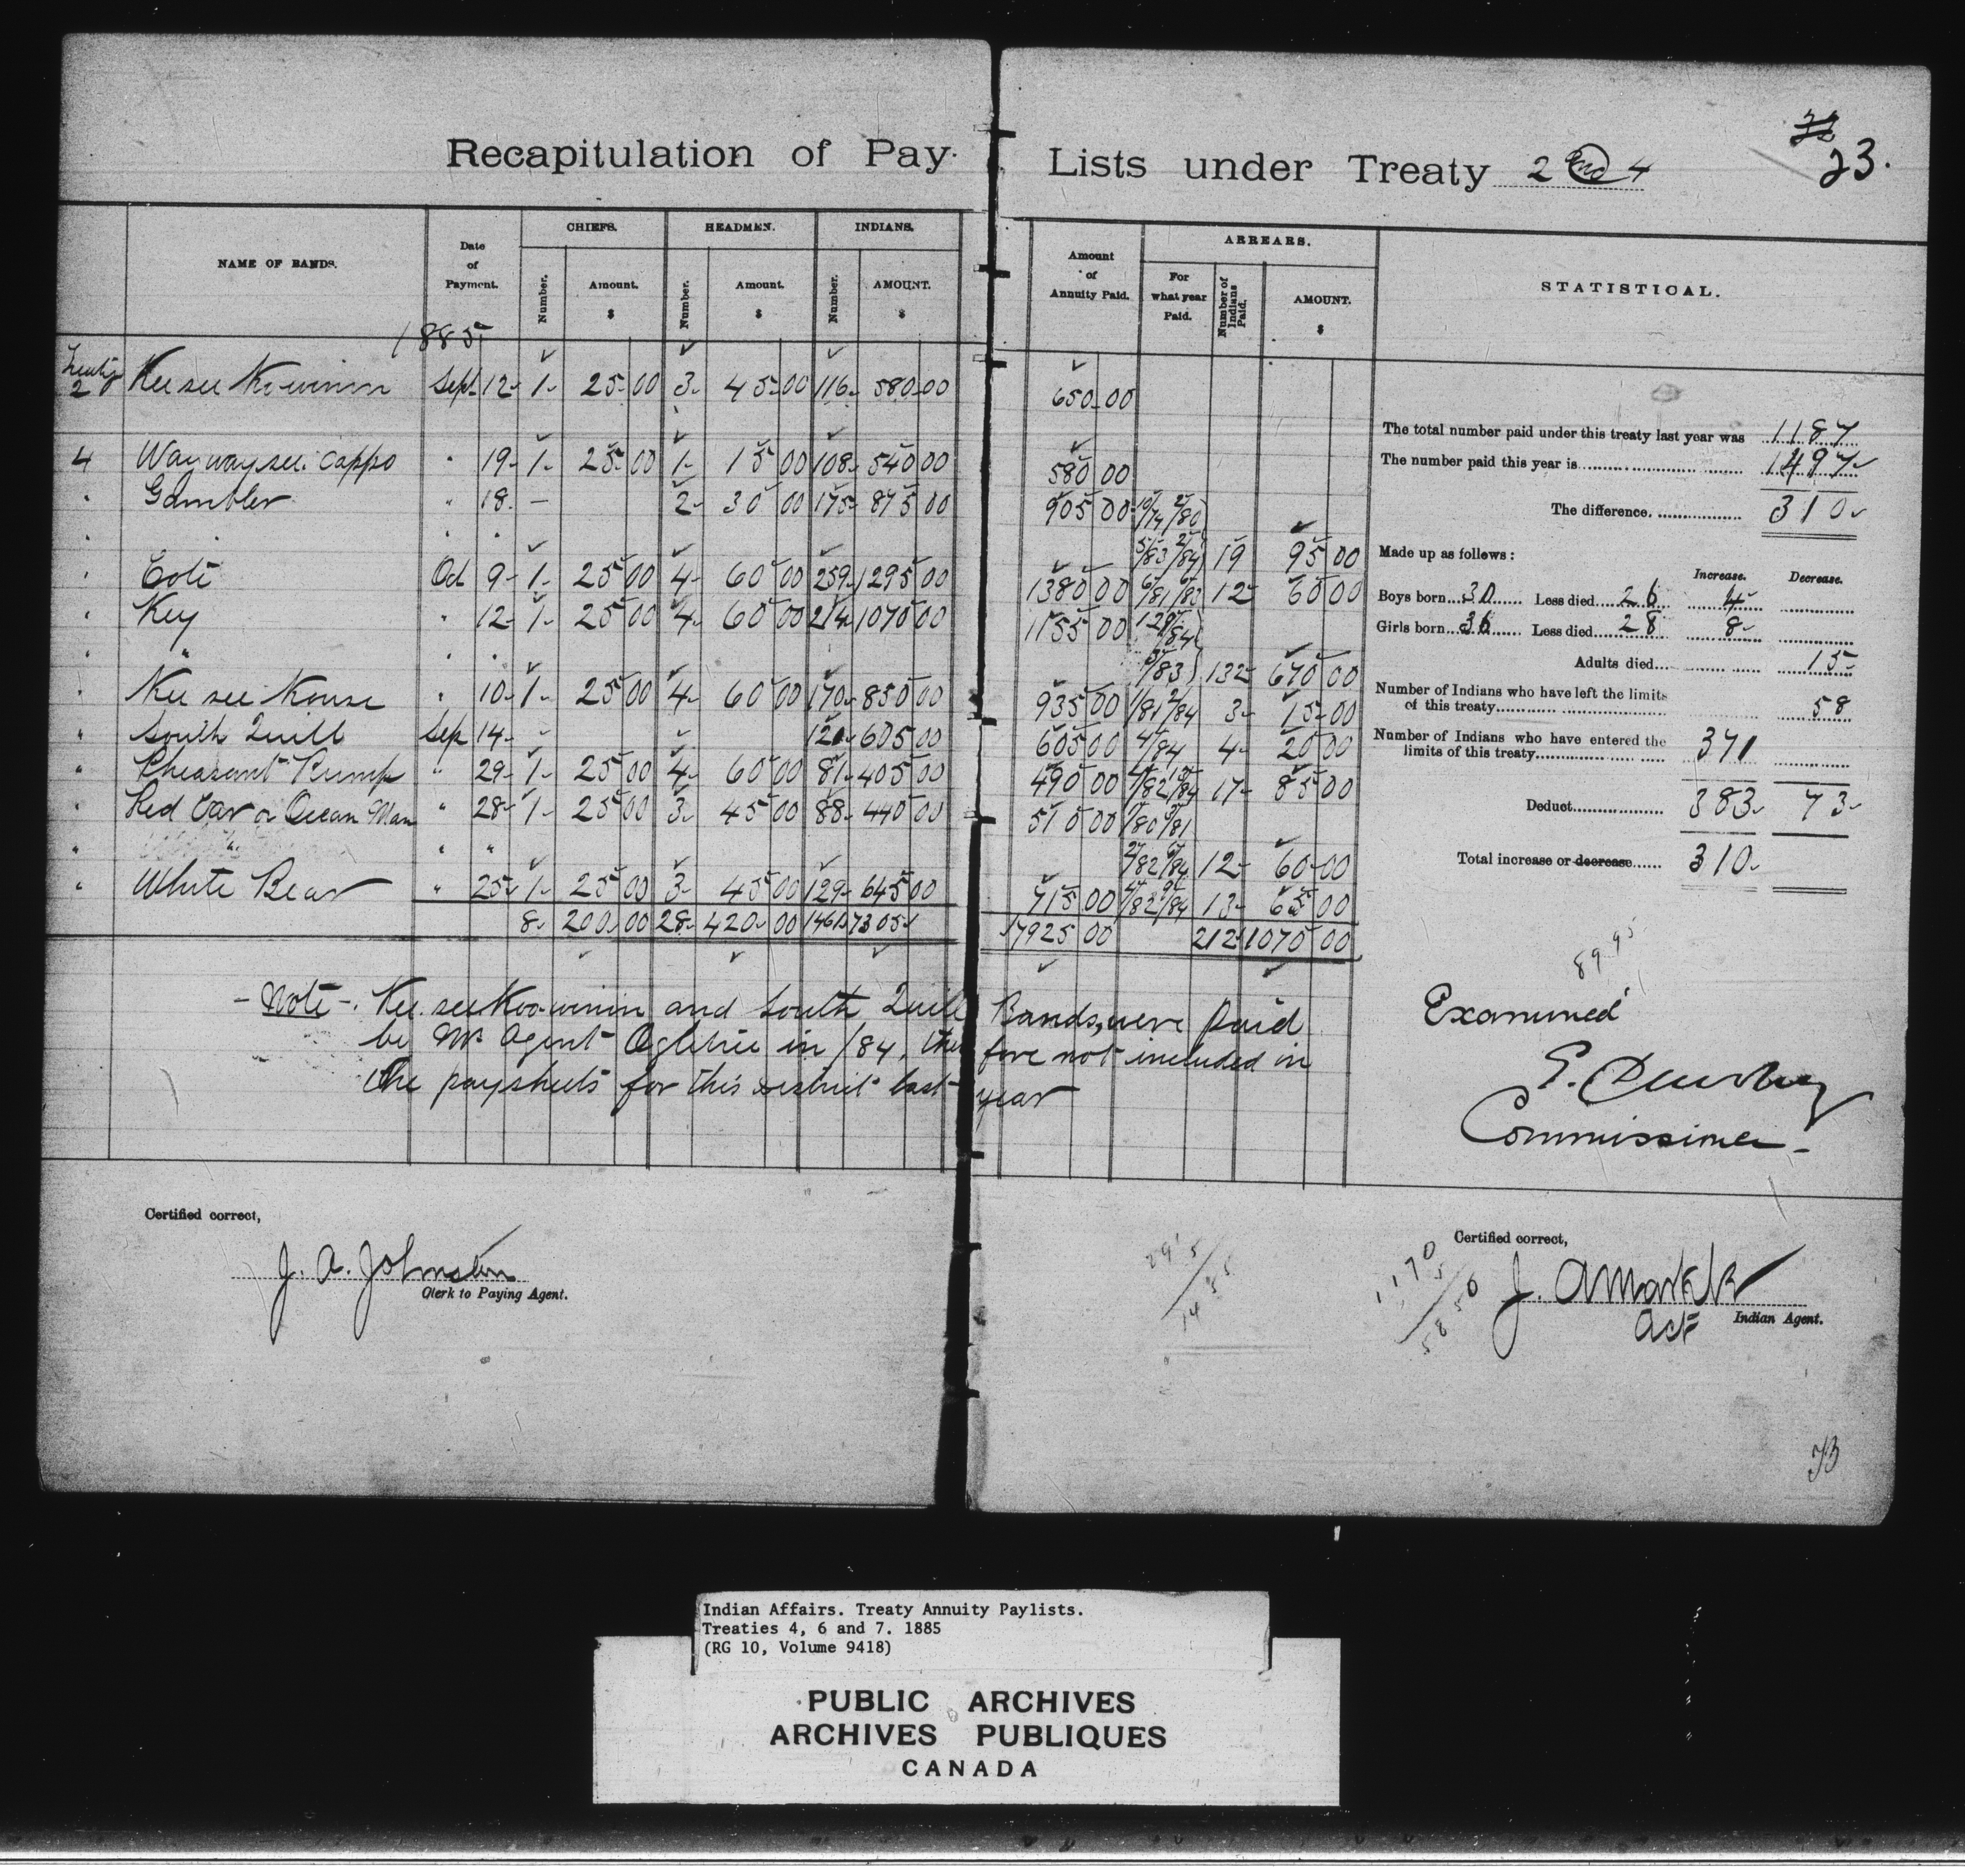 23.
Recapitulation of Pay Lists under Treaty 2 and 4
NAME OF BANDS.
Date of Payment.
CHIEFS.
Number.
Amount. $
HEADMEN.
Number.
Amount. $
INDIANS.
Number.
AMOUNT. $
Amount of Annuity Paid.
ARREARS.
For what year Paid.
Number of Indians Paid.
AMOUNT. $
STATISTICAL.
1885
Treaty 2 Kee see Koowinin Sept 12 1 25 00 3 45 00 116 580 00 650 00
4 Waywaysee Cappo " 19 1 25 00 1 15 00 108 540 00 580 00
" Gambler " 18 - 2 30 00 175 875 00 905 00 10/79 2/80
" " " 5/83 2/84 19 95 00
" Coté Oct 9 1 25 00 4 60 00 259 1295 00 1380 00 6/81 6/83 12 60 00
" Key " 12 1 25 00 4 60 00 214 1070 00 1155 00 129/84
" " " " 5/83 132 670 00
" Kee see Kouse " 10 1 25 00 4 60 00 170 850 00 935 00 1/81 2/84 3 15 00
" South Quill Sep 14 - - 121 605 00 605 00 4/84 4 20 00
" Pheasant Rump " 29 1 25 00 4 60 00 81 405 00 490 00 17 85 00
" Red Ear or Ocean Man " 28 1 25 00 3 45 00 88 440 00 510 00
" " " " 12 60 00
" White Bear " 25 1 25 00 3 45 00 129 645 00 715 00 4/82 9/84 13 65 00
8 200 00 28 420 00 1461 7305 7925 00 212 1070 00
The total number paid under this treaty last year was 1187
The number paid this year is 1497
The difference. 310
Made up as follows:
Increase. Decrease.
Boys born 30 Less died 26 4
Girls born 36 Less died 28 8
Adults died 15
Number of Indians who have left the limits
of this treaty 58
Number of Indians who have entered the
limits of this treaty 371
Deduct 383 73
Total increase or decrease 310
- Note -. Kee see Koo-winin and South Quill Bands, were paid
by Mr Agent Ogletree in /84, therefore not included in
the paysheets for this district last year
89.95
Examined
E. Dewdney
Commissioner -
Certified correct,
J. A. Johnston
Clerk to Paying Agent.
291
5
1455
1170
5
5850
Certified correct,
J. A Markle
Act Indian Agent.
Indian Affairs. Treaty Annuity Paylists.
Treaties 4, 6 and 7. 1885
(RG 10, Volume 9418)
PUBLIC ARCHIVES
ARCHIVES PUBLIQUES
CANADA